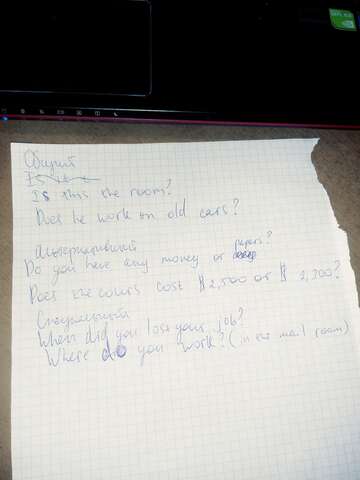 Общий
Is this the room?
Does he work on old cars?
Альтернативный
Do you have any money or papers?
Does the cours cost $2,500 or $ 2,300?
Специальный
When did you lost your job?
Where do you work? (in the mail room)